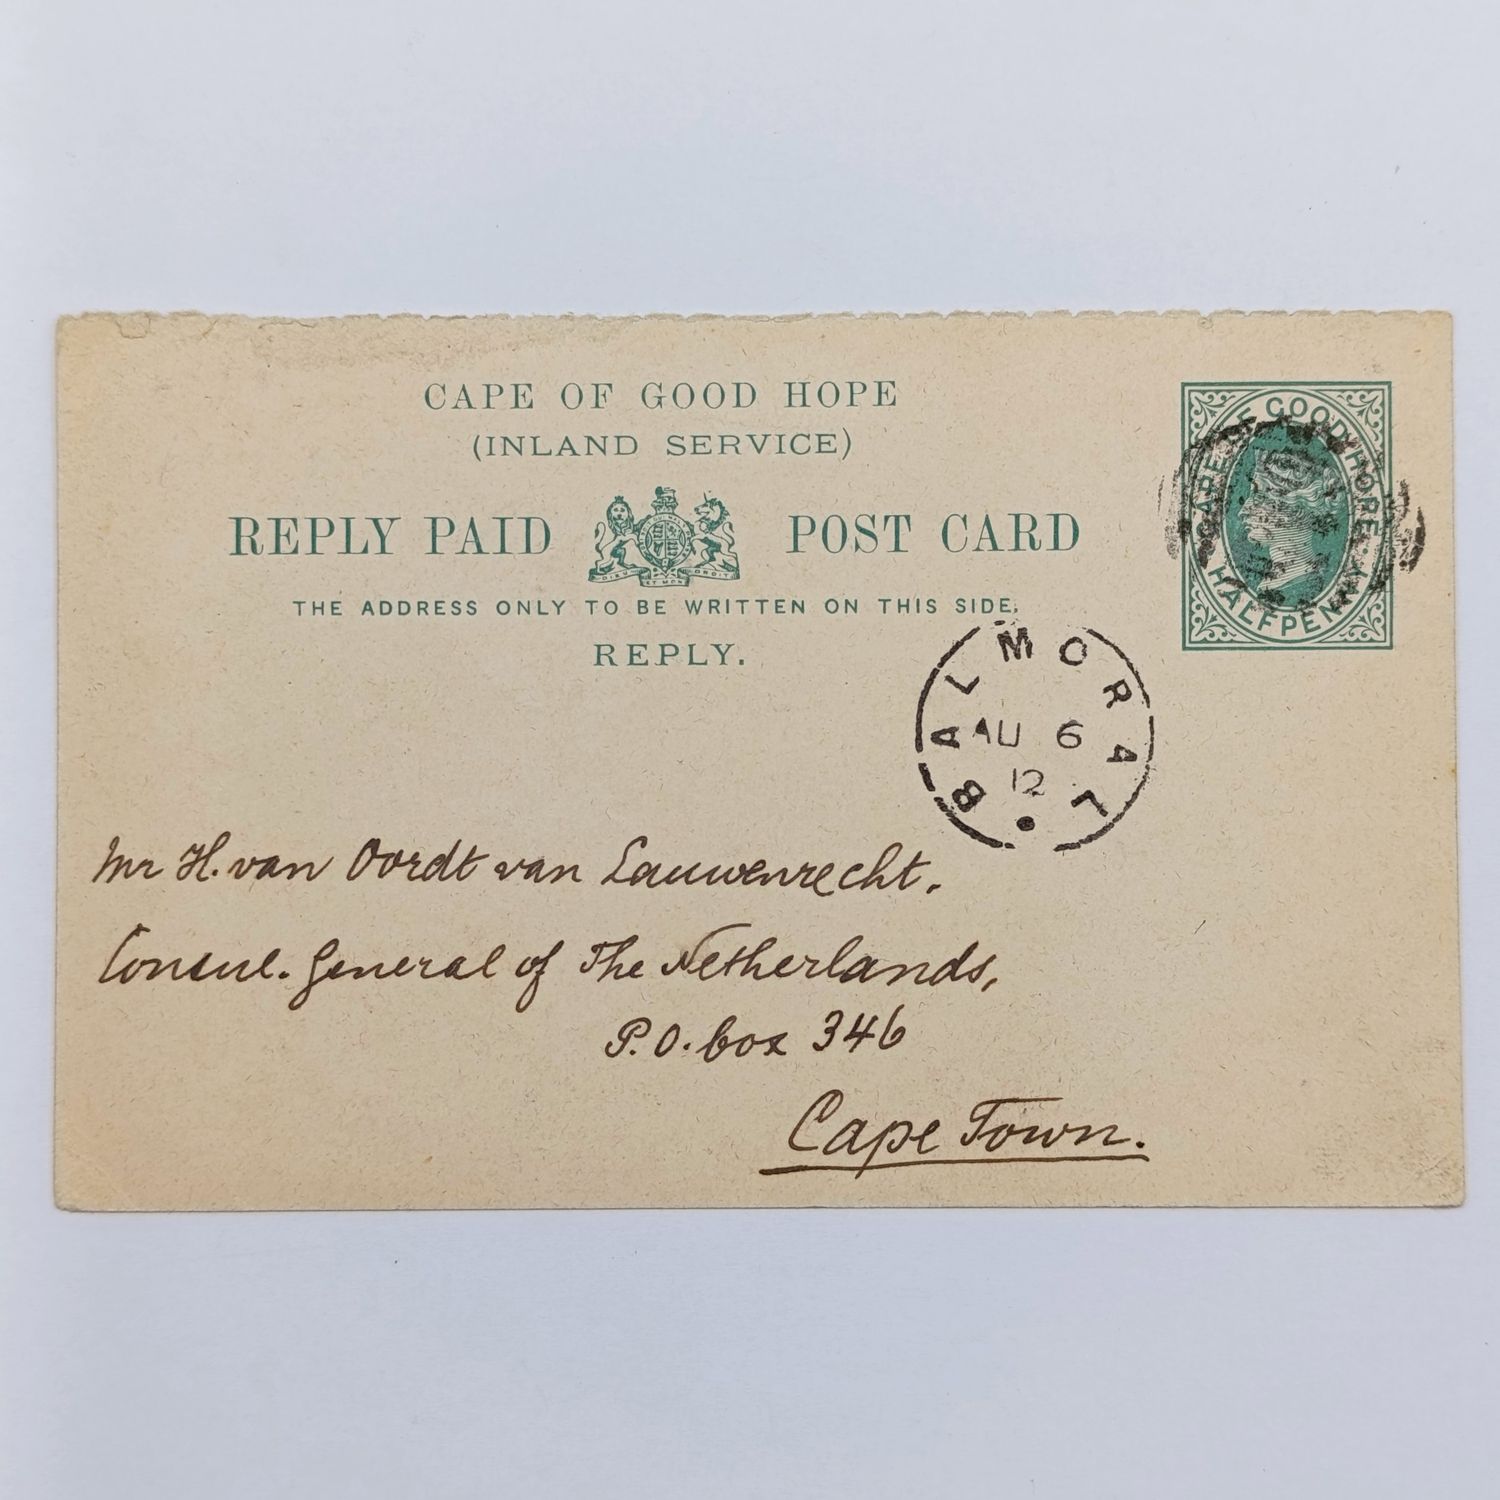 CAPE OF GOOD HOPE
(INLAND SERVICE)
REPLY PAID POST CARD
DIEU ET MON DROIT
THE ADDRESS ONLY TO BE WRITTEN ON THIS SIDE.
REPLY.
CAPE OF GOOD HOPE
HALFPENNY
BALMORAL
AU 6
12
Mr H. van Oordt van Lauwenrecht.
Consul. General of The Netherlands,
P.O. box 346
Cape Town.